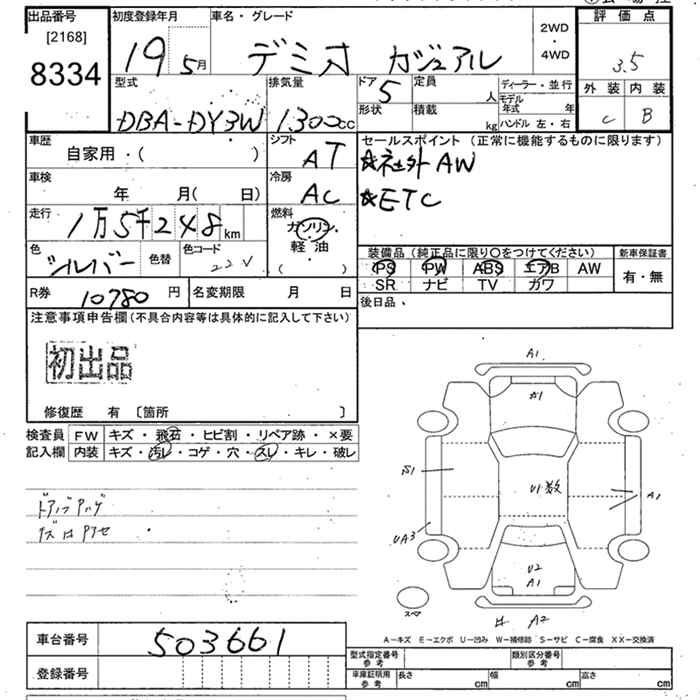 出品番号
[2168]
8334
初度登録年月
19 5月
車名・グレード
デミオ カジュアル
2WD
・
4WD
評価点
3.5
外装 内装
C B
型式
DBA-DY3W
排気量
1300cc
ドア
5
形状
定員
人
積載
kg
ディーラー・並行
モデル年式 年
ハンドル 左・右
車歴
自家用・(
シフト
AT
セールスポイント (正常に機能するものに限ります)
☆社外 AW
☆ETC
車検
年 月( 日)
冷房
AC
走行
1万5千248km
燃料
ガソリン・
軽油・
( )
色
シルバー
色替
色コード
22V
装備品 (純正品に限り〇をつけてください)
PS PW ABS エアB AW
SR ナビ TV カワ
新車保証書
有・無
R券
10780円
名変期限 月 日
後日品、
注意事項申告欄(不具合内容等は具体的に記入して下さい)
初出品
修復歴 有 〔箇所 〕
検査員
記入欄
FW キズ・飛石・ヒビ割・リペア跡・×要
内装 キズ・汚レ・コゲ・穴・スレ・キレ・破レ
A1
S1
U1数
A1
UA3
U2
A1
スペア
A2
A-キズ E-エクボ U-凹み W-補修跡 S-サビ C-腐食 XX-交換済
車台番号
503661
登録番号
型式指定番号
参考
類別区分番号
参考
車庫証明用
参考
長さ cm
幅 cm
高さ cm